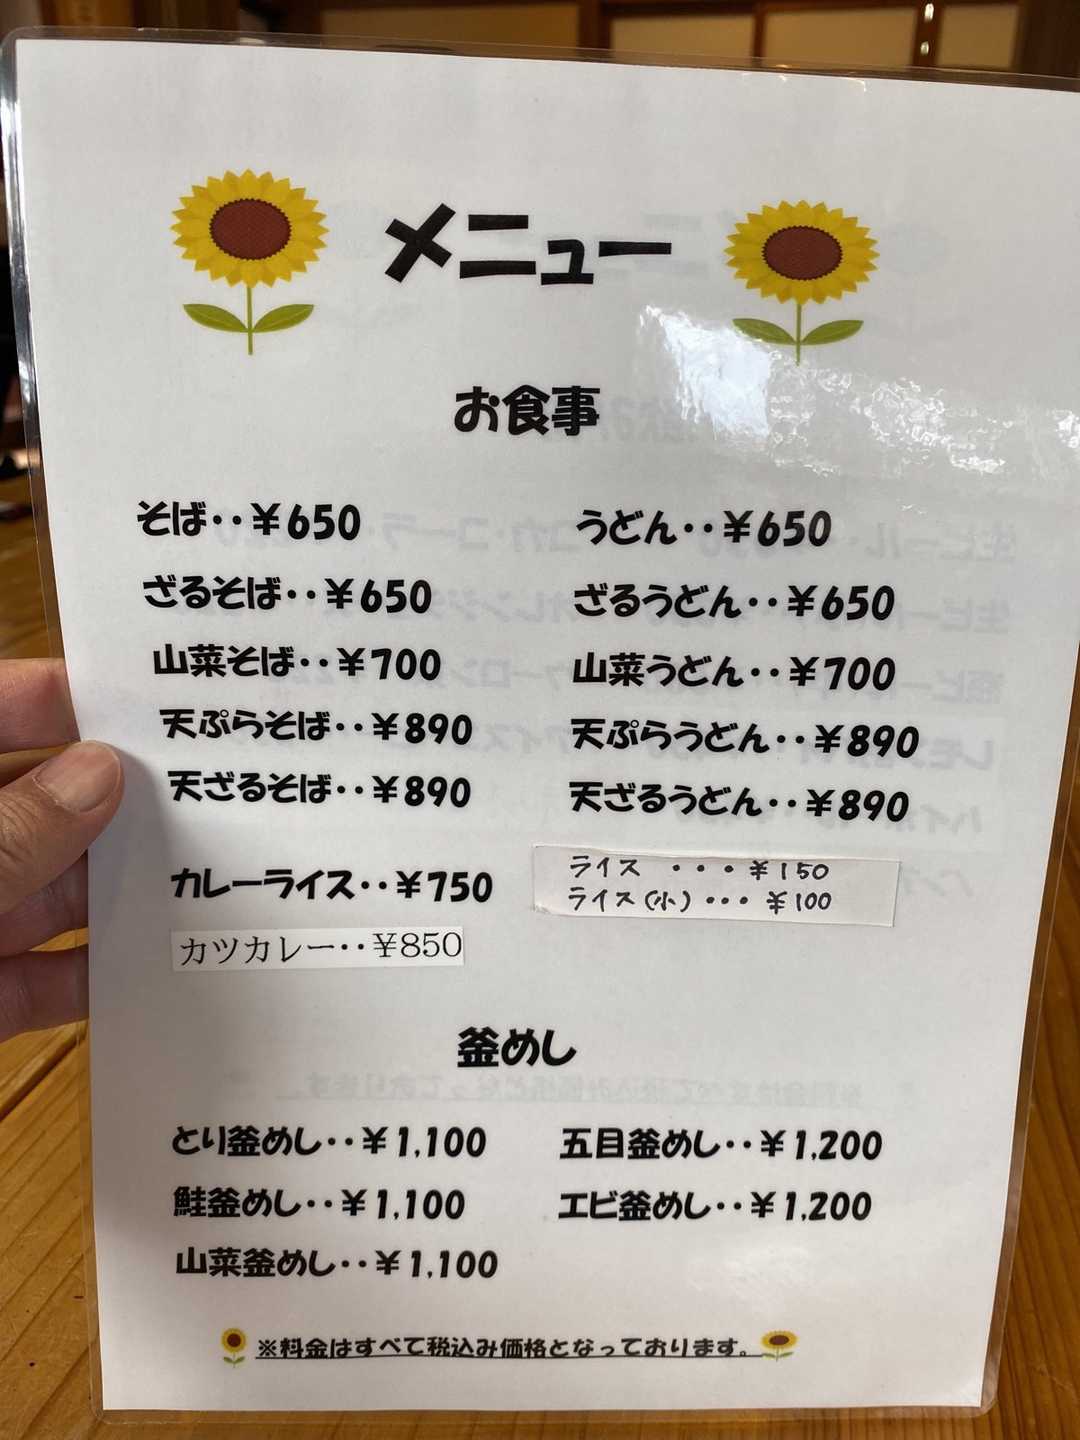 メニュー
お食事
そば‥￥650
うどん‥￥650
ざるそば‥￥650
ざるうどん‥￥650
山菜そば‥￥700
山菜うどん‥￥700
天ぷらそば‥￥890
天ぷらうどん‥￥890
天ざるそば‥￥890
天ざるうどん‥￥890
カレーライス‥￥750
ライス ・・・￥150
ライス(小)・・・￥100
カツカレー‥￥850
釜めし
とり釜めし‥￥1,100
五目釜めし‥￥1,200
鮭釜めし‥￥1,100
エビ釜めし‥￥1,200
山菜釜めし‥￥1,100
※料金はすべて税込み価格となっております。